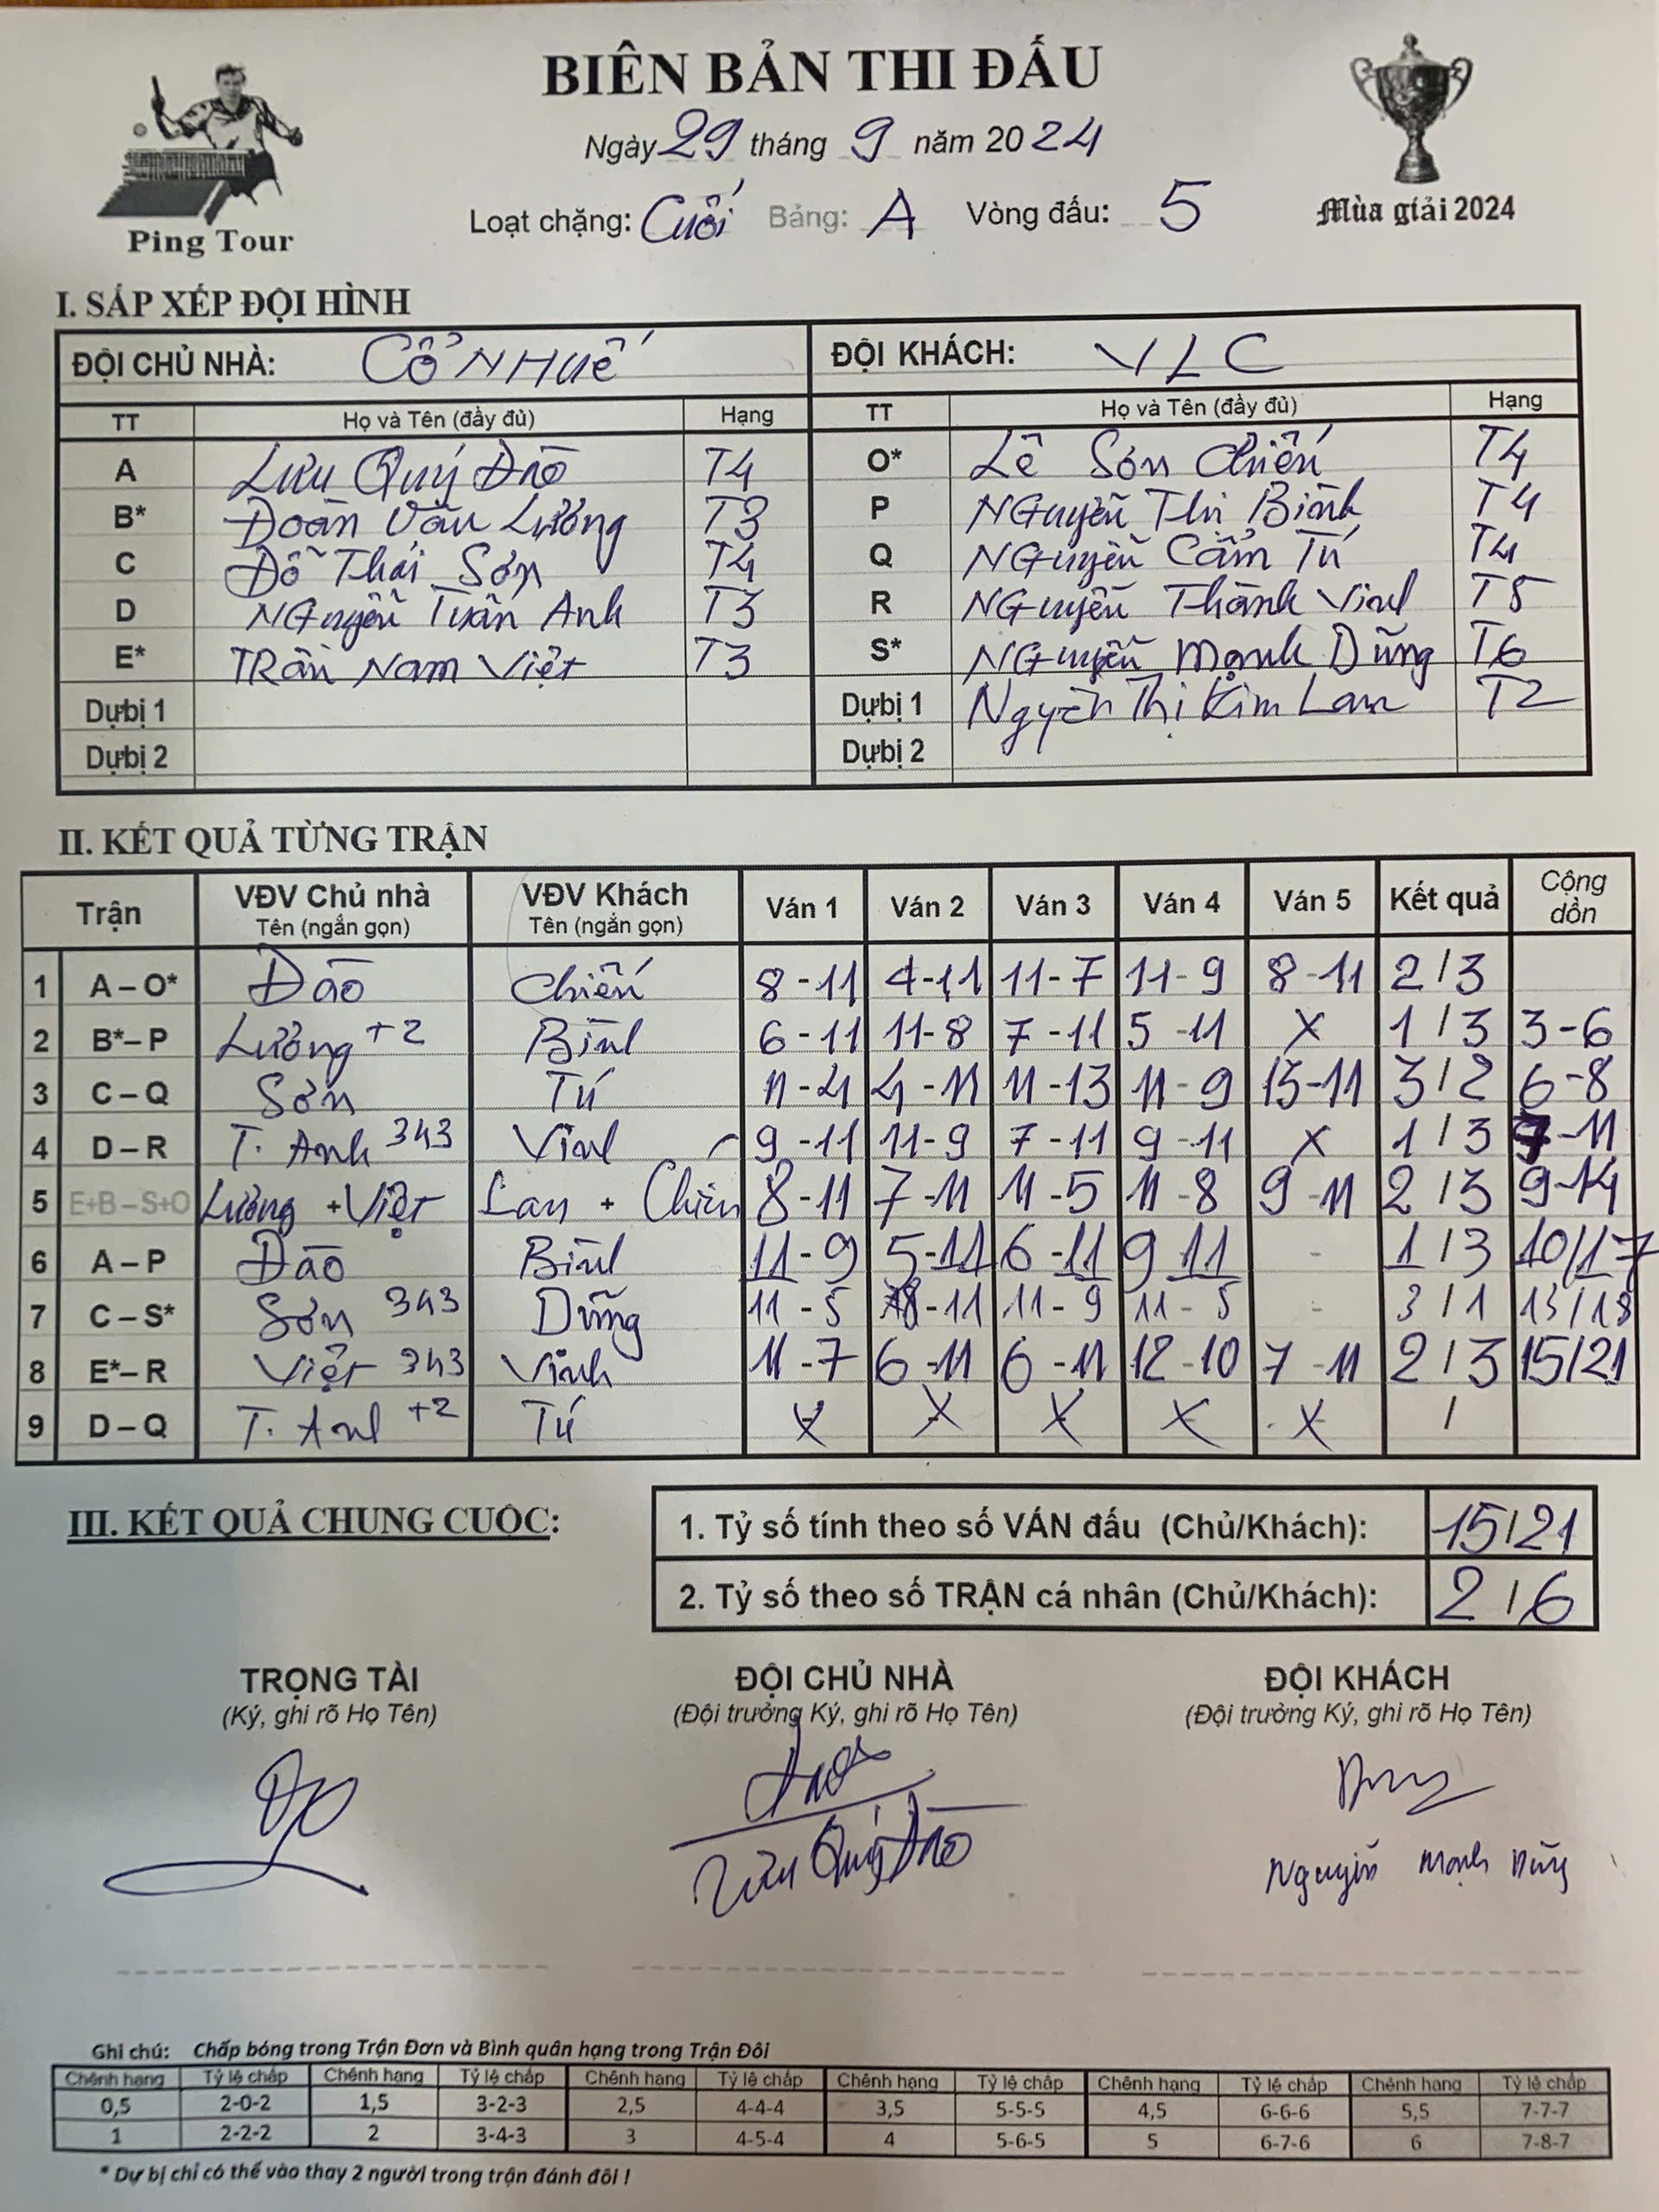 BIÊN BẢN THI ĐẤU
Ngày 29 tháng 9 năm 2024
Loạt chặng: Cuối Bảng: A Vòng đấu: 5
Ping Tour
Mùa giải 2024
I. SẮP XẾP ĐỘI HÌNH
ĐỘI CHỦ NHÀ: CỔ NHUẾ ĐỘI KHÁCH: VLC
TT Họ và Tên (đầy đủ) Hạng TT Họ và Tên (đầy đủ) Hạng
A Lưu Quý Đào T4 O* Lê Sơn Chiến T4
B* Đoàn Văn Lưỡng T3 P NGuyễn Thị Bình T4
C Đỗ Thái Sơn T4 Q NGuyễn Cẩm Tú T4
D NGuyễn Tuấn Anh T3 R NGuyễn Thành Vinh T5
E* TRần Nam Việt T3 S* NGuyễn Mạnh Dũng T6
Dự bị 1 Dự bị 1 Nguyễn Thị Kim Lan T2
Dự bị 2 Dự bị 2
II. KẾT QUẢ TỪNG TRẬN
Trận VĐV Chủ nhà VĐV Khách Ván 1 Ván 2 Ván 3 Ván 4 Ván 5 Kết quả Cộng dồn
Tên (ngắn gọn) Tên (ngắn gọn)
1 A – O* Đào Chiến 8-11 4-11 11-7 11-9 8-11 2/3
2 B* – P Lưỡng +2 Bình 6-11 11-8 7-11 5-11 X 1/3 3-6
3 C – Q Sơn Tú 11-4 4-11 11-13 11-9 13-11 3/2 6-8
4 D – R T. Anh 343 Vinh 9-11 11-9 7-11 9-11 X 1/3 7-11
5 E+B – S+O Lưỡng + Việt Lan + Chiến 8-11 7-11 11-5 11-8 9-11 2/3 9-14
6 A – P Đào Bình 11-9 5-11 6-11 9 11 - 1/3 10/17
7 C – S* Sơn 343 Dũng 11-5 8-11 11-9 11-5 - 3/1 13/18
8 E* – R Việt 343 Vinh 11-7 6-11 6-11 12-10 7-11 2/3 15/21
9 D – Q T. Anh +2 Tú X X X X X /
III. KẾT QUẢ CHUNG CUỘC:
1. Tỷ số tính theo số VÁN đấu (Chủ/Khách): 15/21
2. Tỷ số theo số TRẬN cá nhân (Chủ/Khách): 2/6
TRỌNG TÀI ĐỘI CHỦ NHÀ ĐỘI KHÁCH
(Ký, ghi rõ Họ Tên) (Đội trưởng Ký, ghi rõ Họ Tên) (Đội trưởng Ký, ghi rõ Họ Tên)
Lưu Quý Đào
Nguyễn Mạnh Dũng
Ghi chú: Chấp bóng trong Trận Đơn và Bình quân hạng trong Trận Đôi
Chênh hạng Tỷ lệ chấp Chênh hạng Tỷ lệ chấp Chênh hạng Tỷ lệ chấp Chênh hạng Tỷ lệ chấp Chênh hạng Tỷ lệ chấp Chênh hạng Tỷ lệ chấp
0,5 2-0-2 1,5 3-2-3 2,5 4-4-4 3,5 5-5-5 4,5 6-6-6 5,5 7-7-7
1 2-2-2 2 3-4-3 3 4-5-4 4 5-6-5 5 6-7-6 6 7-8-7
* Dự bị chỉ có thể vào thay 2 người trong trận đánh đôi !